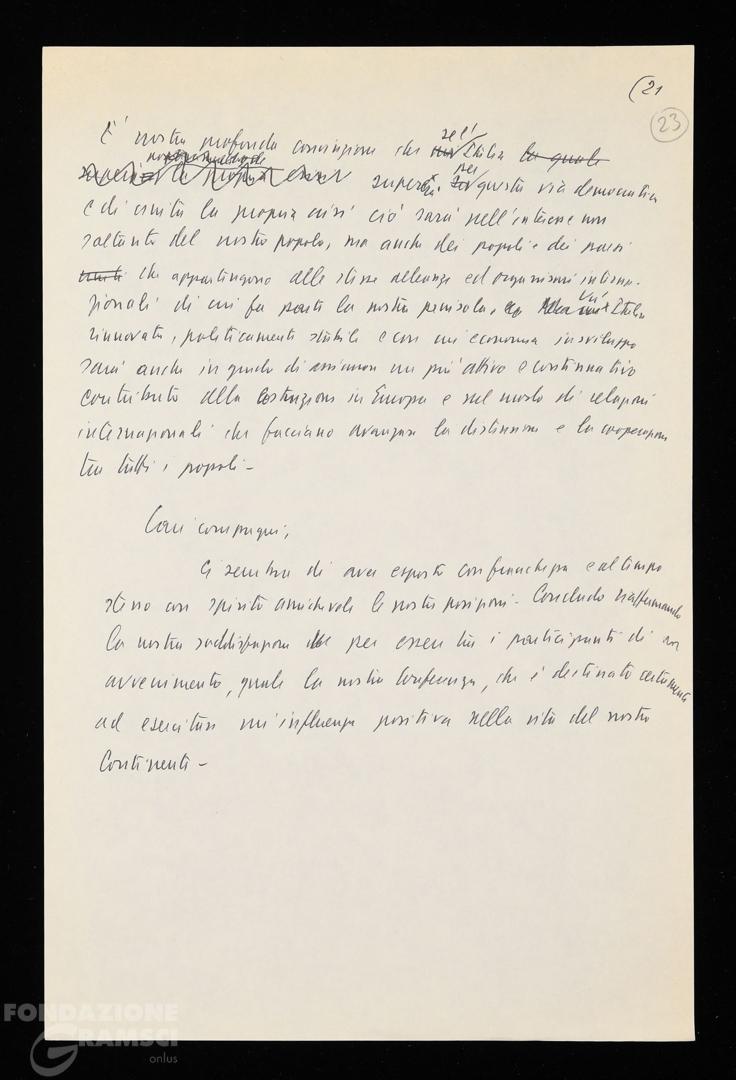 (21
23
È nostra profonda convinzione che se l'Italia la quale
supererà per questa via democratica
e di unità la propria crisi ciò sarà nell'interesse non
soltanto del nostro popolo, ma anche dei popoli e dei paesi
che appartengono alle stesse alleanze ed organismi interna-
zionali di cui fa parte la nostra penisola. Un'Italia
rinnovata, politicamente stabile e con un'economia in sviluppo
sarà anche in grado di assicurare un più attivo e costruttivo
contributo alla costruzione in Europa e nel mondo di relazioni
internazionali che facciano avanzare la distensione e la cooperazione
tra tutti i popoli -
Cari compagni,
Ci sembra di aver esposto con franchezza e al tempo
stesso con spirito amichevole le nostre posizioni - Concludo riaffermando
la nostra soddisfazione per essere tra i partecipanti di un
avvenimento, quale la nostra Conferenza, che è destinato certamente
ad esercitare un'influenza positiva nella vita del nostro
Continente -
FONDAZIONE
GRAMSCI
onlus